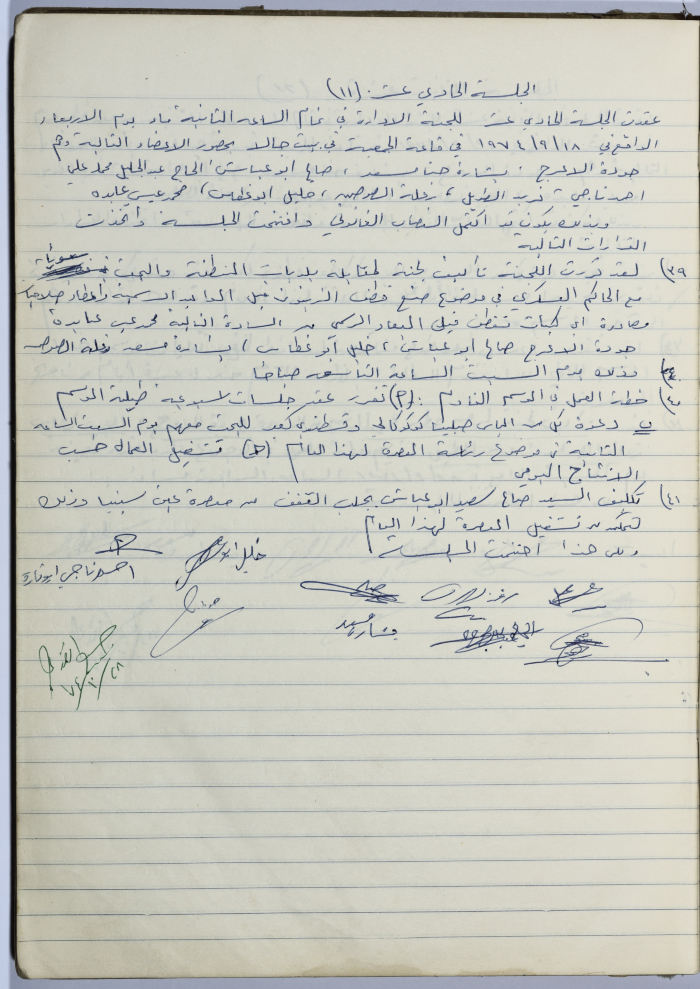 الجلسة الحادي عشر (١١)
عقدت الجلسة الحادي عشر للجنة الادارة في تمام الساعه الثانية مساء يوم الاربعاء
الواقع في ١٩٧٤/٩/١٨ في قاعة الجمعية في بيت جالا بحضور الاعضاء التالية وهم
جودة الاعرج ، بشارة حنا مسعد ، صالح ابو عباس ، الحاج عبد الجليل محمد علي
احمد ناجي ، فريد الطويل ، زغلة الصوص ، خليل ابو غطاس ، محمد عيسى عابده
وبذلك يكون قد اكتمل النصاب القانوني وافتتحت الجلسة واتخذت
القرارات التالية
٣٩) لقد قررت اللجنة تأليف لجنة لمقابلة بلديات المنطقة والبحث سوية
مع الحاكم العسكري في موضوع منع قطف الزيتون قبل المواعيد الرسمية واعطاء
مصادرة اي كميات تقطف قبل الميعاد الرسمي من السادة التالية محمد عيسى عابدة
جودة الاعرج صالح ابو عباس ، خليل ابو غطاس ، بشارة مسعد زغلة الصوص
وذلك يوم السبت الساعة التاسعه صباحا
٤٠) خطة العمل في الموسم القادم : (٢) تقرر عقد جلسات اسبوعية طيلة الموسم
ب دعوة كل من الياس وقسطندي للبحث معهم يوم السبت الساعه
الثانية في موضوع رئاسة المعصرة لهذا العام (ج) تشغيل العمال حسب
الانتاج اليومي
٤١) تكليف السيد صالح سعيد ابو عباس بجلب القفف من معصرة عين سينيا وذلك
لنتمكن من تشغيل المعصرة لهذا العام
وعلى هذا اختتمت الجلسة
خليل ابو
احمد ناجي ابو
بشاره مسعد
٧٤/١٠/٢٨